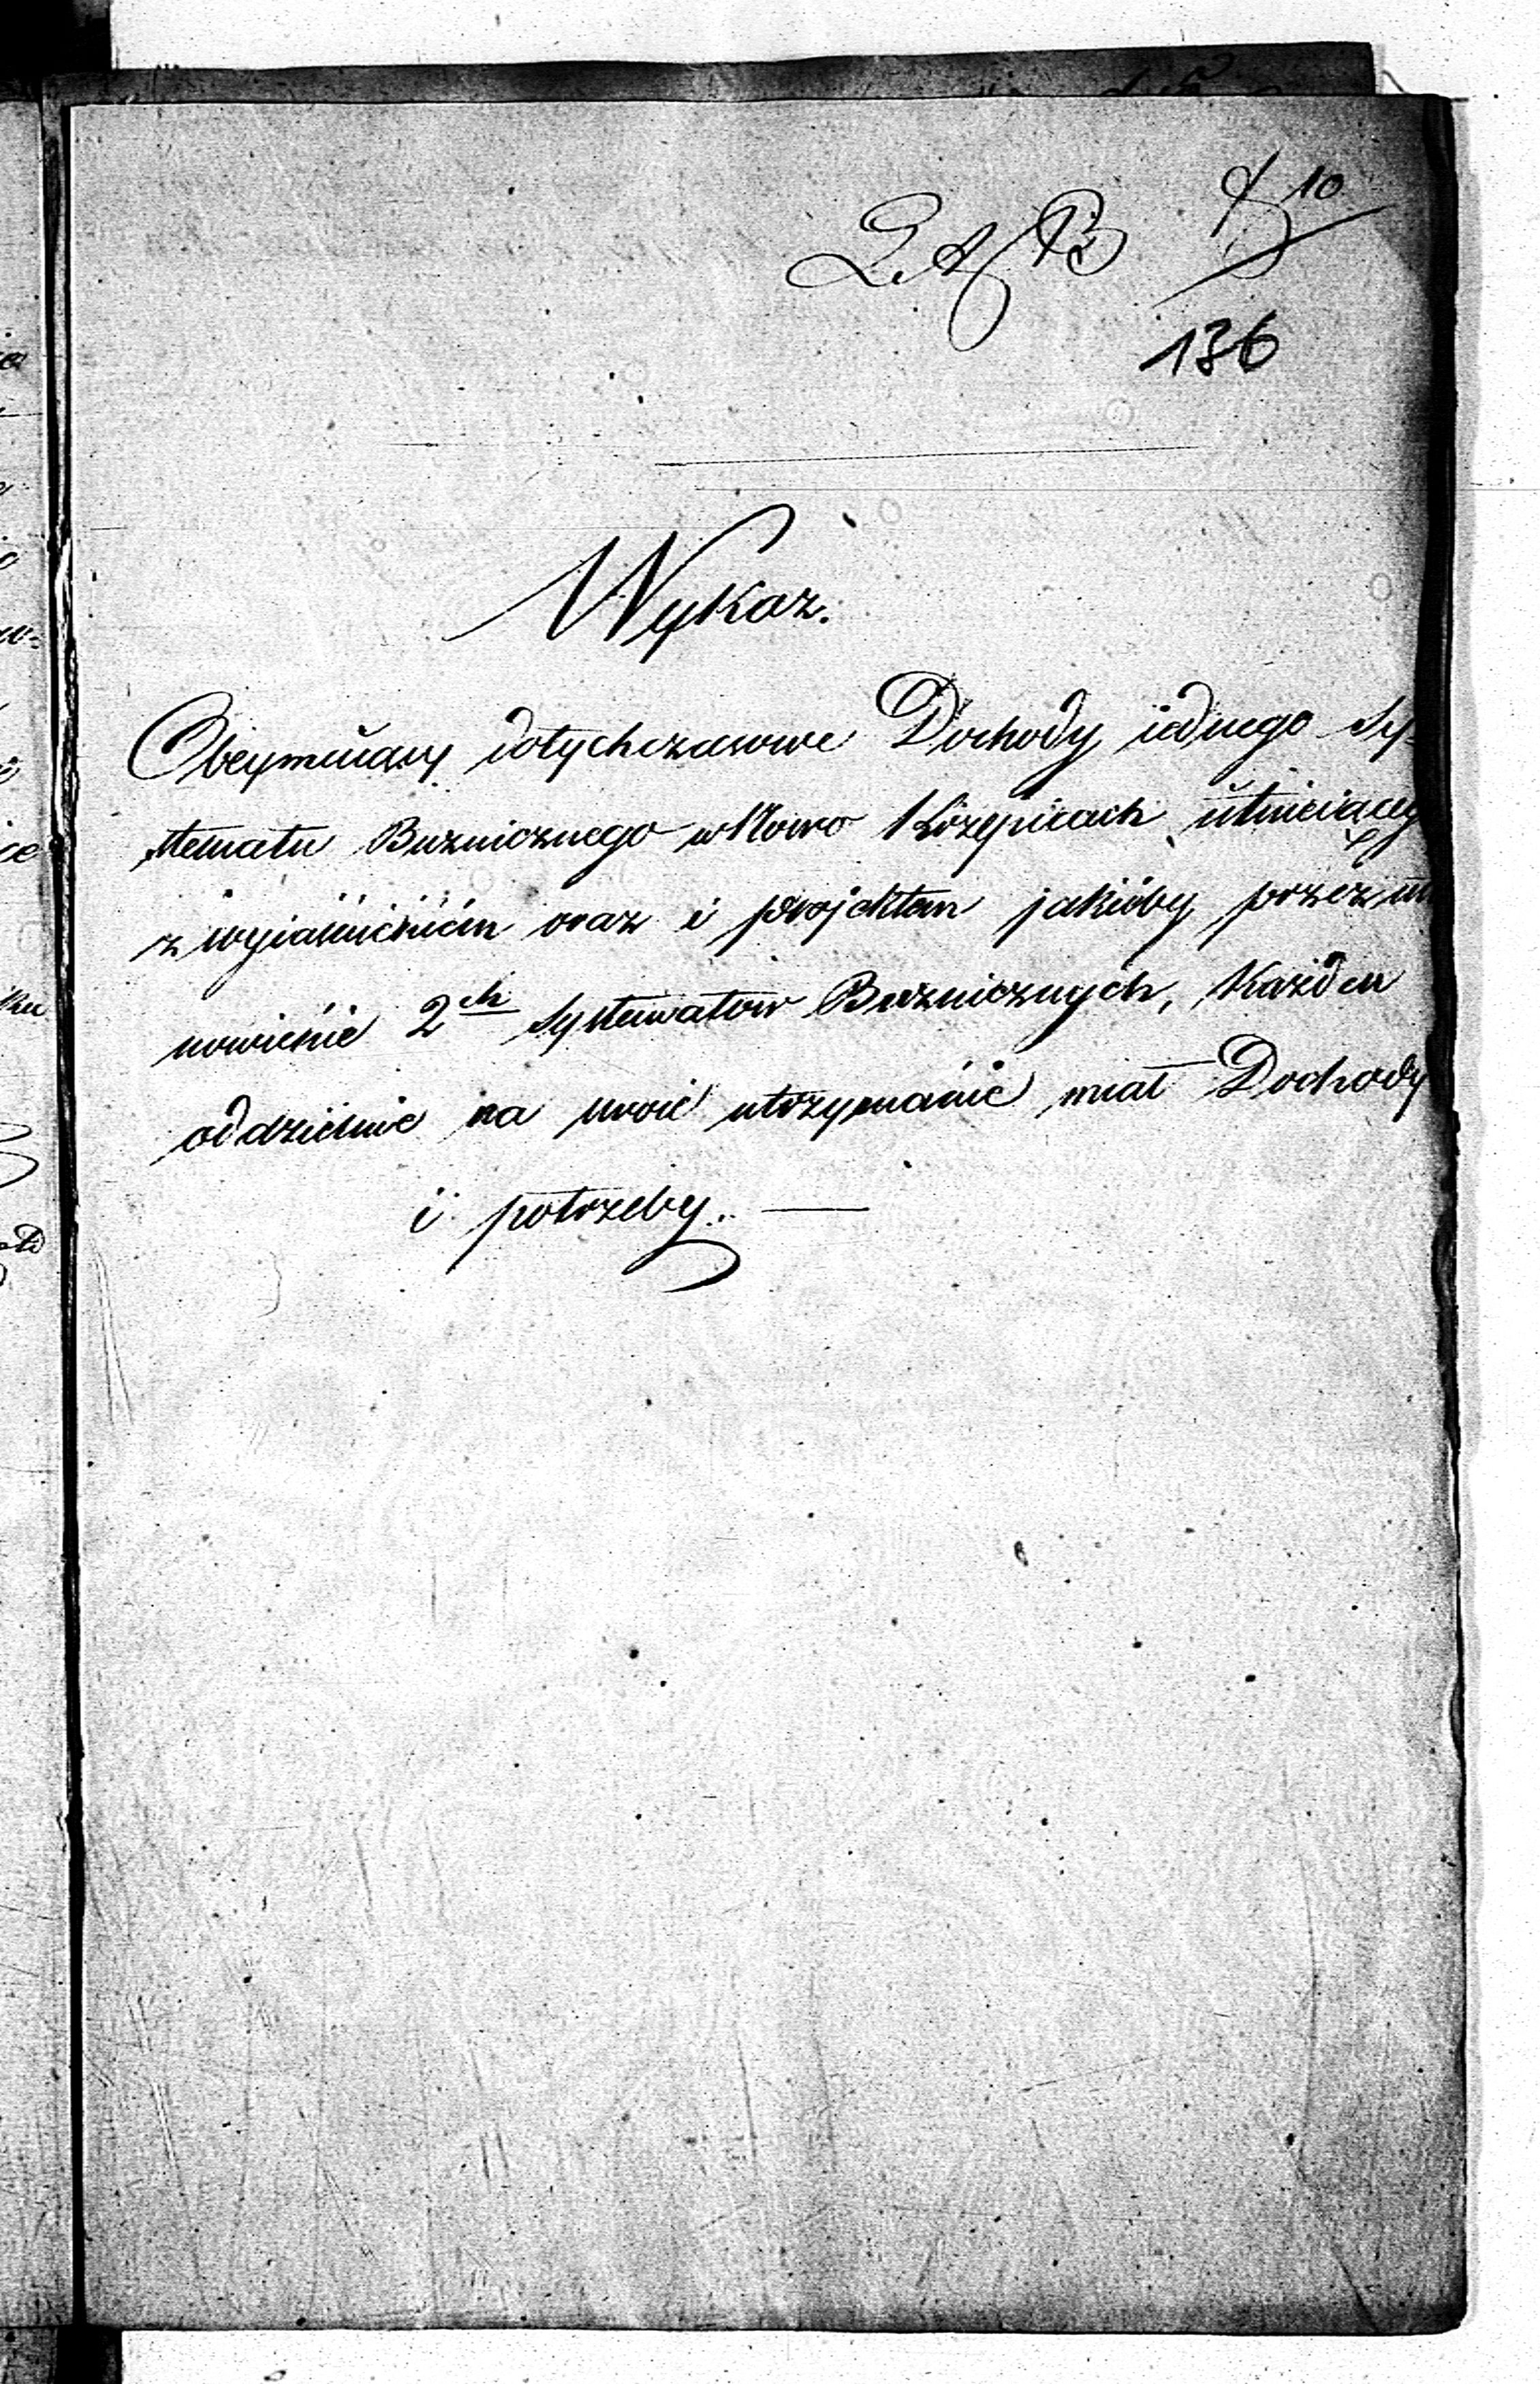 Lit B
10
136
Wykaz.
Obeymuiący dotychczasowe Dochody iednego Sy-
stematu Buznicznego w Nowo Krzepicach istnieiącego
z wyiaśnieniem oraz i projektem jakieby przez usta
nowienie 2ch Systematow Buznicznych, Każden
oddzielnie na swoie utrzymanie miał Dochody
i potrzeby. —